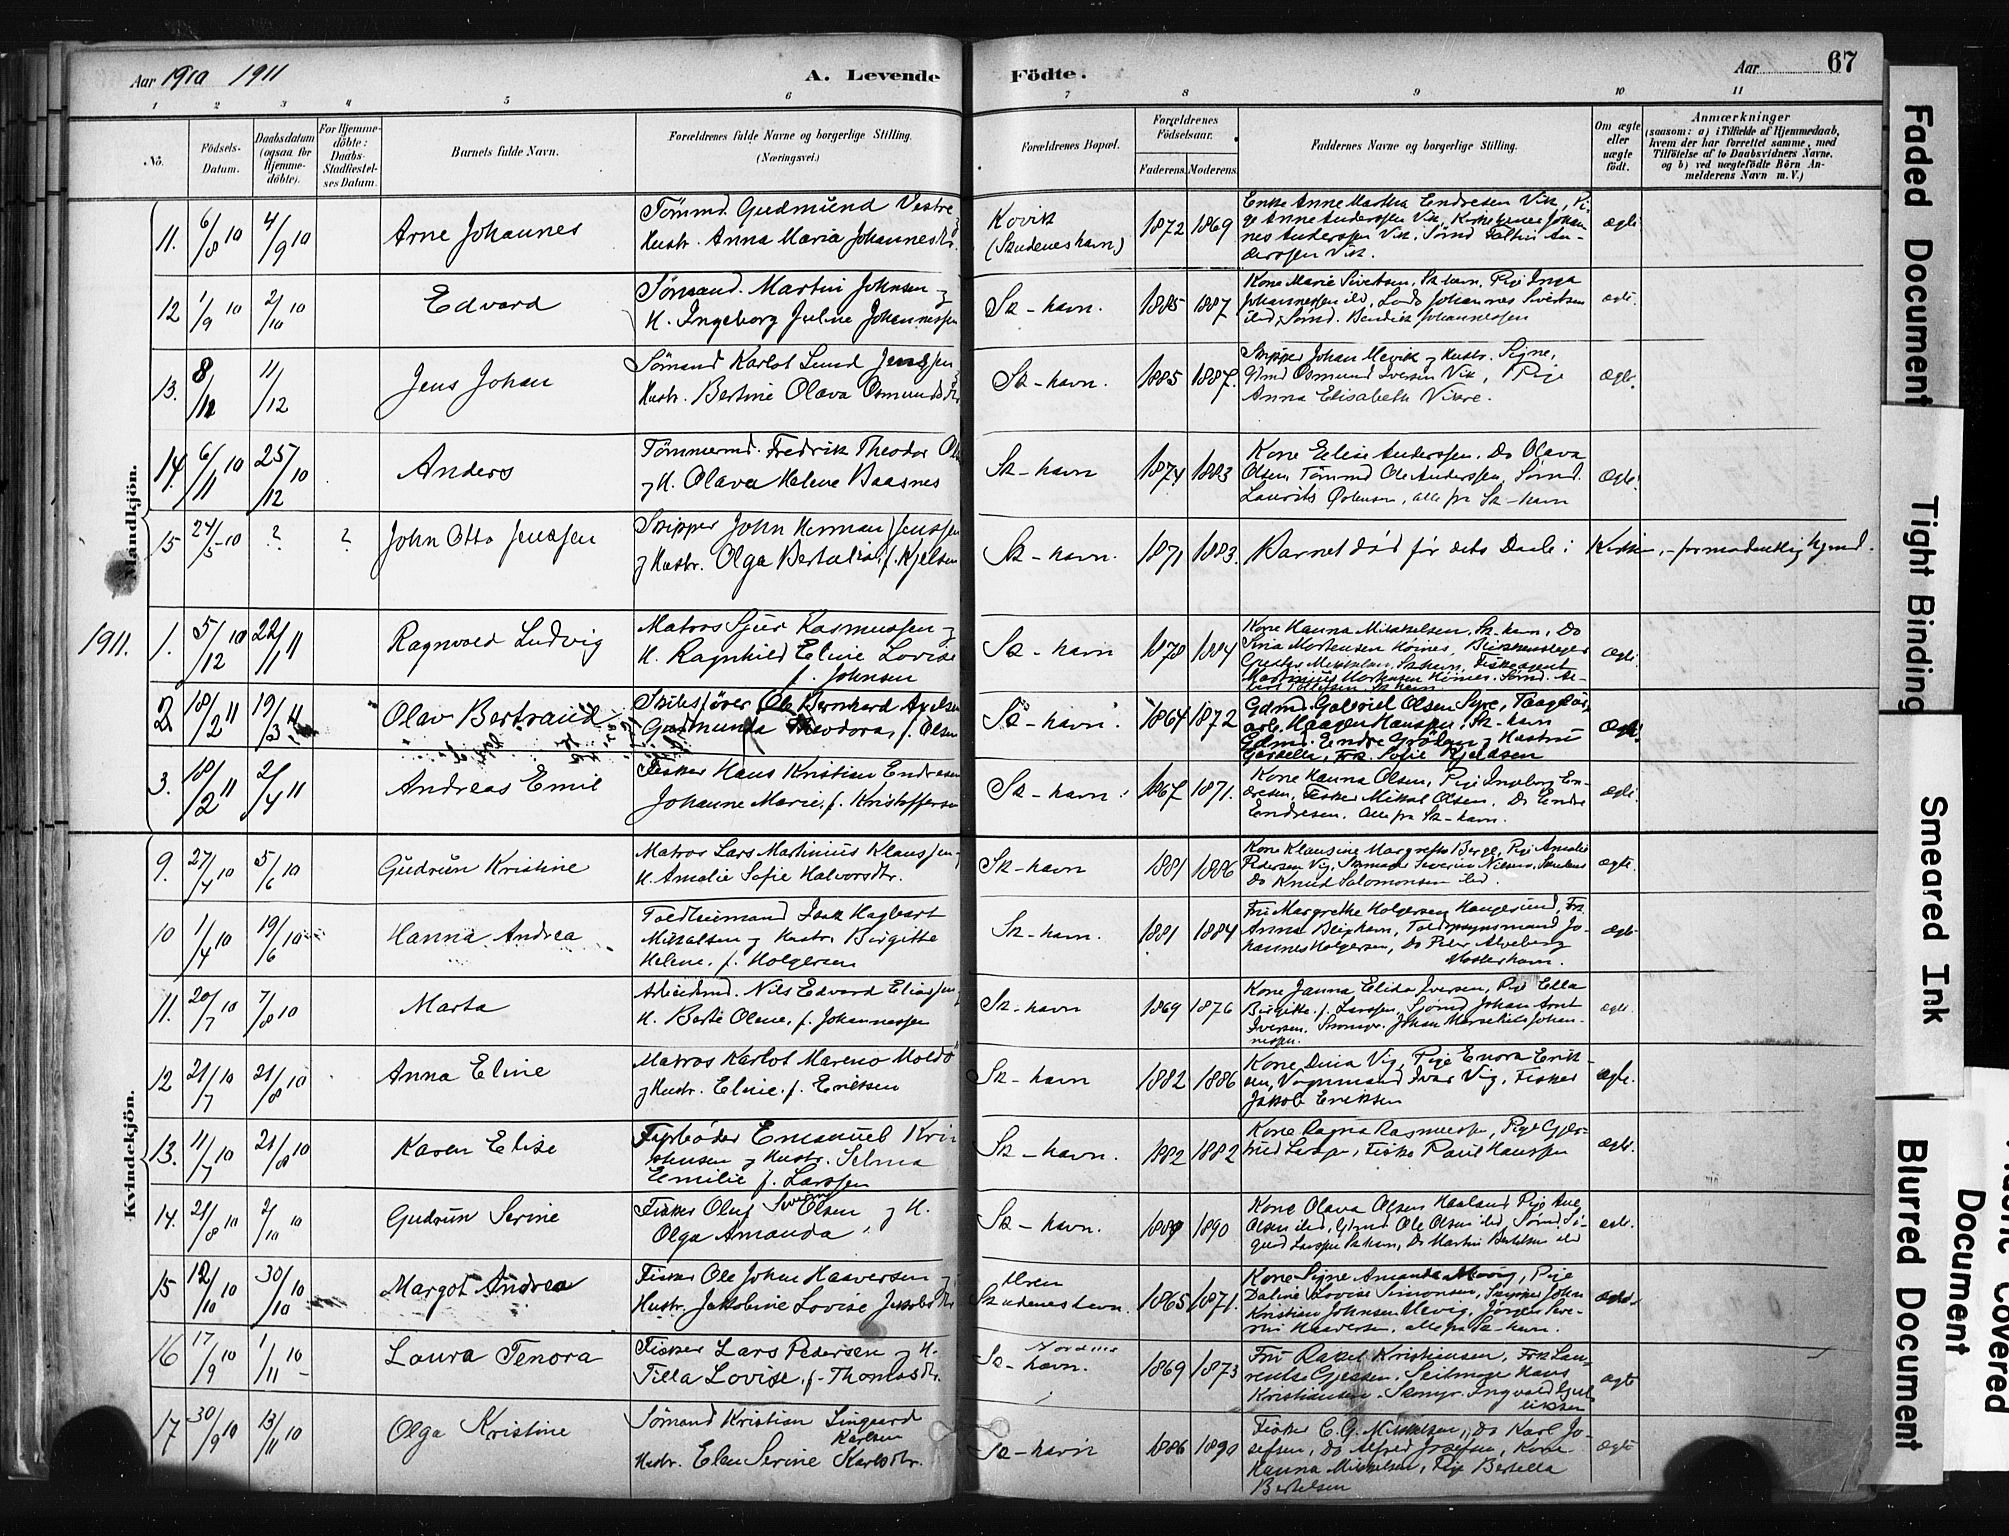 Aar 1910 1911
A. Levende Fødte.
Aar 67
1 2 3 4 5 6 7 8 9 10 11
No.
Födsels-Datum.
Daabsdatum (ogsaa for Hjemme-döbte).
For Hjemme-döbte: Daabs-Stadfæstel-ses Datum.
Barnets fulde Navn.
Forældrenes fulde Navne og borgerlige Stilling. (Næringsvei.)
Forældrenes Bopæl.
Forældrenes Födselsaar.
Faderens. Moderens.
Faddernes Navne og borgerlige Stilling.
Om ægte eller uægte födt.
Anmærkninger
(saasom: a) i Tilfælde af Hjemmedaab, hvem der har forrettet samme, med Tilföielse af to Daabsvidners Navne, og b) ved uægtefödte Börn An-melderens Navn m. V.)
Mandkjön.
11. 6/8 10 4/9 10 Arne Johannes
Tömmd. Gudmund Vestre
Hustr. Anna Maria Johannesdtr.
Kovik (Skudeneshavn) 1872 1869
Enke Anne Martha Endresen Vik, Pi-
ge Anne Anderssen Vik, Kirketjener Johan-
nes Anderssen Vik, Sømd Faltin An-
derssen Vik.
ægte
12 1/9 10 2/10 10 Edvard
Sømand. Martin Johnsen og
H. Ingeborg Juline Johannessen
Sk-havn. 1885 1887
Kone Marie Sivertsen, Sk.havn, Pige Inga
Johannessen ibd, Lods Johannes Sivertsen
ibd, Sømd. Bendik Johannessen
ægte.
13. 8/12 11/12 Jens Johan
Sømand Karlot Lund Jenssen
Hustr. Bertine Olava Osmundsdtr
Sk-havn. 1885 1887.
Skipper Johan Mevik og Hustr. Signe,
Gbmd Osmund Iversen Vik, Pige
Anna Elisabeth Vikre.
Ægte.
14. 6/11 10 25/12 10 Anders
Tömmermd. Fredrik Theodor
og H. Olava Helene Baasnes
Sk-havn 1874 1883
Kone Elise Anderssen. Do Olava
Olsen, Tømmd Ole Anderssen, Sømd.
Laurits, alle fra Sk-havn
Ægte.
15 24/5-10 ? ? John Otto Jenssen
Skipper John Herman Jenssen
og Hustr. Olga Bertalia, f. Kjelsen
Sk-havn. 1871 1883.
Barnet död før dets Daab i Kirken, - formodentlig hjmd.
1911.
1. 5/12 10 22/1 11 Ragnvald Ludvig
Matros Sjur Rasmussen og
H. Ragnhild Eline Lovise
f. Johnsen
Sk-havn 1878 1884
Kone Hanna Mikkelsen, Sk-havn, Do
Sina Mortensen Hoines, Blikkenslager
Mikkelsen, Sk.havn, Fiskeagent
Martinius Mortensen Hoines
ægte
2 18/2 11 19/3 11 Olav Bertrand
Ole Bernhard
Gudmunda Theodora, f. Olsen
Sk-havn. 1864 1872
Gdmd. Gabriel Olsen Syre,
arb. Haagen Hanssen, Sk-havn
Gdmd. Endre og Hustru
, Frk. Sofie Kjeldsen
Ægte.
3. 10/2 11 2/4 11 Andreas Emil
Fisker Hans Kristian Endresen
Johanne Marie, f. Kristoffersen
Sk-havn. 1867 1871.
Kone Hanna Olsen, Pige Ingeborg En-
dresen, Fisker Mikal Olsen, Do Endre
Endresen. Alle fra Sk-havn.
ægte.
Kvindekjön.
9. 27/4 10 5/6 10 Gudrun Kristine
Matros Lars Martinius Klaussen
H. Amalie Sofie Halvorsdtr.
Sk-havn 1881 1886
Kone Klausine Margrethe Berge, Pige Amalie
Pedersen Vig, Severin Nilsen,
Do Knud Salomonsen ibd.
ægte.
10 1/4 10 19/6 10 Hanna Andrea
Toldbetjent Isak Hagbart
Mikkalsen og Hustr. Birgitte
Helene, f. Holgersen
Sk-havn. 1881 1884
Fru Margrethe Holgersen Haugesund, Frk.
Anna, Toldopsynsmand Jo-
hannes Holgersen, Do Peder Alveberg
Mosterhavn.
ægte
11. 20/7 10 7/8 10 Marta
Arbeidsmd. Nils Edvard Eliassen
H. Berte Olene, f. Johannessen
Sk-havn 1869 1876
Kone Janna Elida Iversen, Pige Ella
Birgitte f. Larssen, Sjömd Johan Arnt
Iversen, Johan Johan-
nessen.
ægte.
12 21/7 10 21/8 10 Anna Eline
Matros Karlot Mareno Moldö
og Hustr. Eline, f. Eriksen
Sk-havn 1882 1886
Kone Dina Vig, Pige Enora Erik-
sen, Vognmand Ivar Vig, Fisker
Jakob Eriksen
ægte.
13. 11/7 10 21/8 10 Karen Elise
Emanuel Kri-
stensen og Hustr. Selma
Emilie f. Larssen
Sk-havn. 1882 1882
Kone Ragna Rasmussen, Pige Gjer-
trud, Fisker Paul Hanssen
ægte.
14. 21/8 10 2/10 10 Gudrun Serine
Fisker Oluf Severin Olsen og H.
Olga Amanda
Sk-havn. 1889 1890
Kone Olava Olsen Haaland, Pige
Olsen ibd, Gbmd Ole Olsen ibd, Sømd Si-
gurd Larssen Sk.havn, Do Martin Bertelsen ibd
ægte.
15 12/10 10 30/10 10 Margot Andrea
Fisker Ole Johan Haaversen og
Hustr. Jakobine Lovise Jakobsdtr
Skudeneshavn. 1865 1871.
Kone Signe Amanda Mevig, Pige
Daline Lovise Simonsen, Skipper John
Kristian Johnsen Mevig, Jørgen Seve-
rin Haaversen, alle fra Sk-havn.
ægte.
16 17/9 10 1/11 10 Laura Tenora
Fisker Lars Pedersen og H.
Tilla Lovise, f. Thomasdtr.
Sk-havn. 1869 1873
Fru Rakel Kristiansen, Frk Lau-
rentse Gjessen, Seilmager Hans
Kristiansen, Ingvald
ægte
17 30/9 10 13/11 10 Olga Kristine
Sømand Kristian Lingaard
Karlsen
Hustr. Elen Serine Karlsdtr.
Sk-havn 1886 1890
Fisker C. G. Mikkelsen, Do Karl Jo-
sefsen, Do Alfred Josefsen, Kone
Hanna Mikkelsen, Pige Bertella
Bertelsen
ægte
Faded Document
Tight Binding
Smeared Ink
Blurred Document
Document
Covered